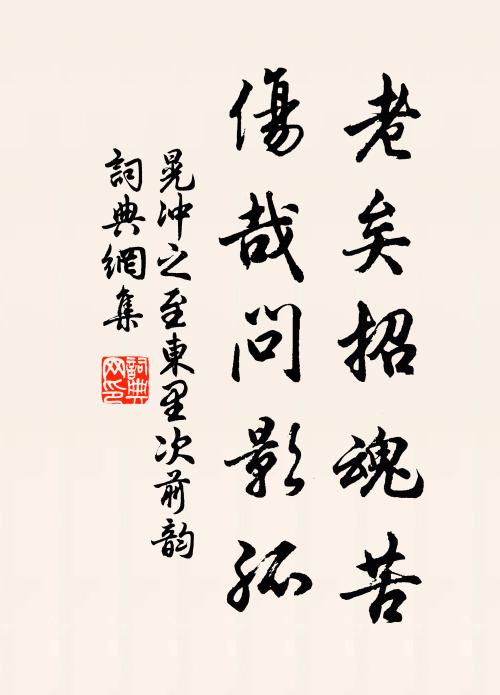 老矣招魂苦
傷哉問影孤
晃沖之至東里次前韵
詞典網集
詞典
网印